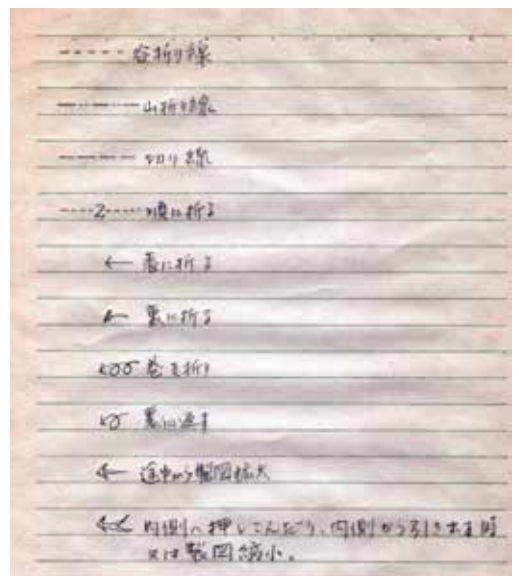 谷折り線
山折り線
切り線
2 順に折る
表に折る
裏に折る
巻き折り
裏に返す
途中から製図拡大
内側へ押しこんだり、内側から引き出す時
又は製図縮小。